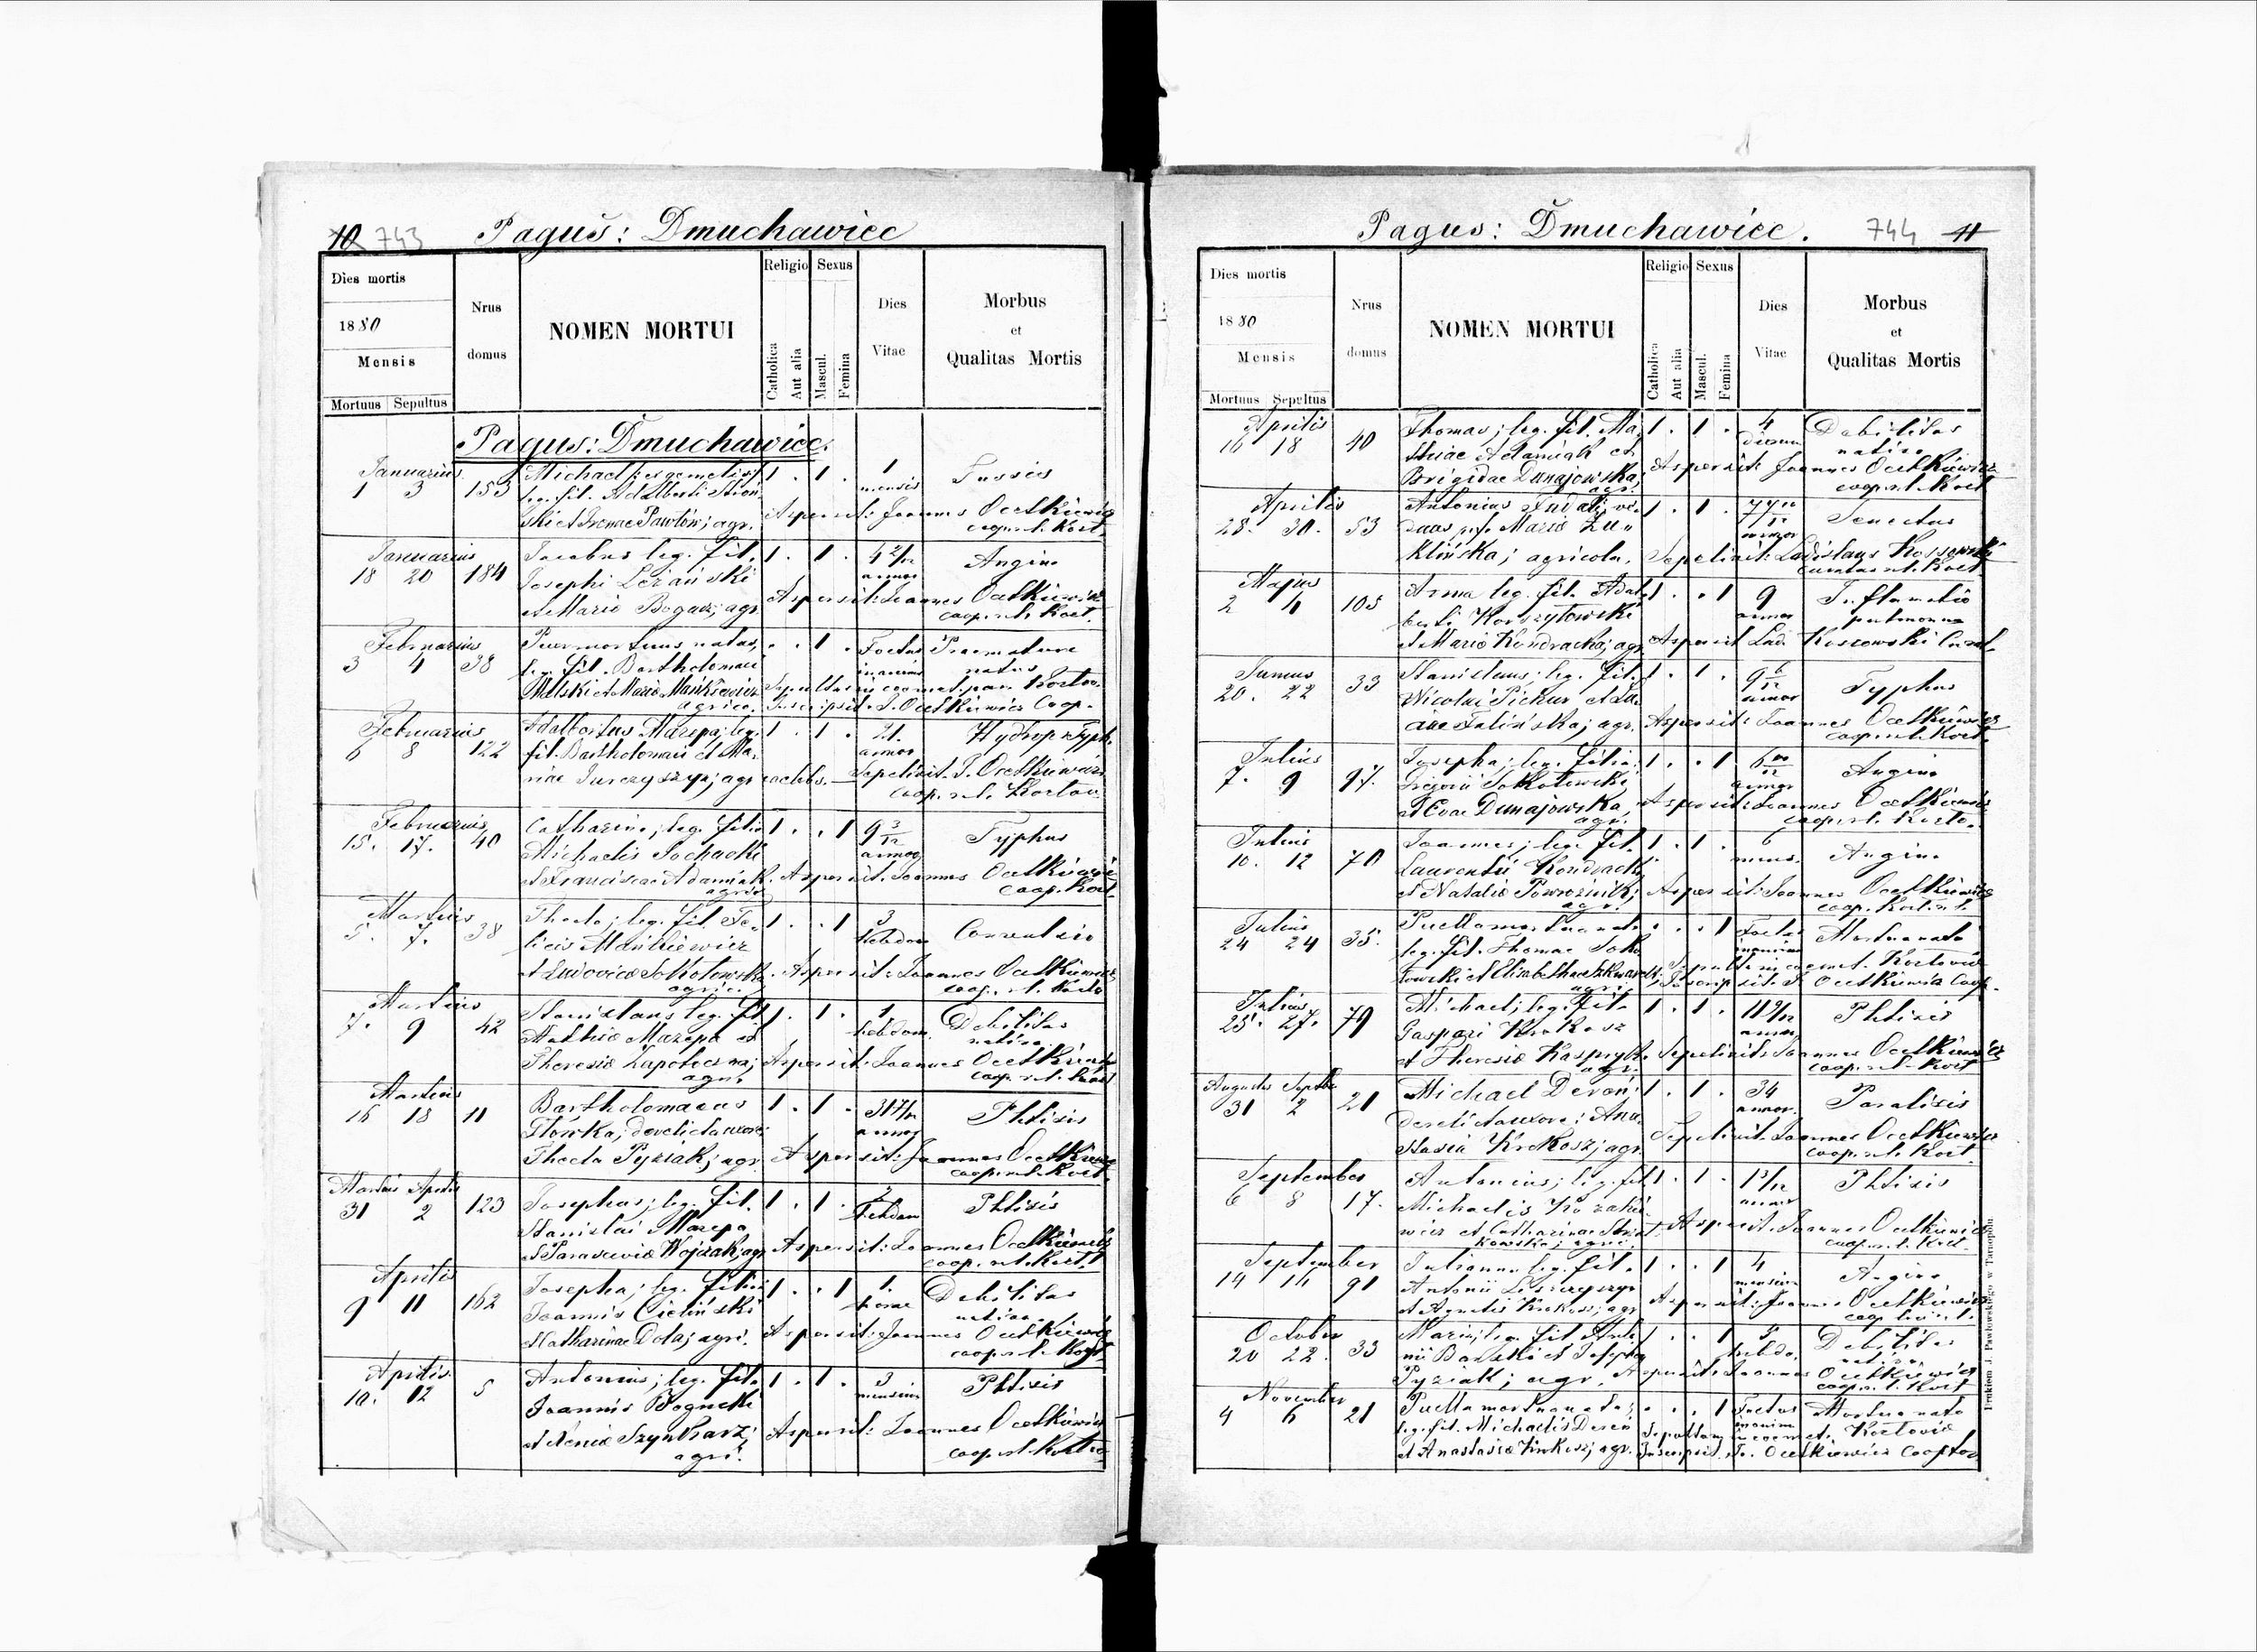 10 743 Pagus: Dmuchawiec
Dies mortis
1880
Mensis
Mortuus Sepultus
Nrus
domus
NOMEN MORTUI
Religio
Catholica
Aut alia
Sexus
Mascul.
Femina
Dies
Vitae
Morbus
et
Qualitas Mortis
Pagus: Dmuchawiec.
Januarius
1 3 153 Michael 1 . 1 . 1 mensis Tussis
leg. fil. Adalberti
et Irenae Pawłów; agr. Aspersit: Joannes Ocetkiewicz
coop. r. l. Kozt.
Januarius
18 20 184 Jacobus leg. fil. 1 . 1 . 4 2/12 annor Angina
Josephi Leżański
et Mariae Bogacz; agr. Aspersit: Joannes Ocetkiewicz
coop. r. l. Kozt.
Februarius
3 4 38 Puer mortuus natus, . . 1 . Foetus Praemature
leg. fil. Bartholomaei natus
agrico. Inscripsit J. Ocetkiewicz Coop.
Februarius
6 8 122 Adalbertus Mazepa; leg. 1 . 1 . 21. annor Hydrops Typh.
fil. Bartholomaei et Ma-
riae Jurczyszyn; agr. caelebs. Sepelivit J. Ocetkiewicz
coop. r. l. Koztov.
Februarius
15. 17. 40 Catharina; leg. filia 1 . . 1 9 3/12 annor Typhus
Michaelis Sochacki
et Franciscae Adamiak. Aspersit: Joannes Ocetkiewicz
agric. coop. Kozt.
Martius
5. 7. 38 Thecla; leg. fil. Fe- 1 . . 1 3 hebdom Convulsio
licis Mańkiewicz
et Ludovicae Sokołowska. Aspersit: Joannes Ocetkiewicz
agric. coop. r. l. Kozto
Martius
7. 9 42 Stanislaus leg. fil. 1 . 1 . 1 hebdom. Debilitas
Mathiae Mazepa et nativa
Theresiae Aspersit: Joannes Ocetkiewicz
agri. coop. r. l. Kozt
Martius
16 18 11 Bartholomaeus 1 . 1 . 31 7/12 annor Phtisis
Główka; derelicta uxore;
Thecla Pyziak; agr. Aspersit: Joannes Ocetkiewicz
coop. r. l. Kozt.
Martius Aprilis
31 2 123 Josephus; leg. fil. 1 . 1 . 2 hebdom Phtisis
Stanislai Mazepa
et Parasceviae Wojciak; agr. Aspersit: Joannes Ocetkiewicz
coop. r. l. Kozt.
Aprilis
9 11 162 Josepha; leg. filia 1 . . 1 1. horae Debilitas
Joannis Cieliński nativa.
et Catharinae Dola; agri. Aspersit: Joannes Ocetkiewicz
coop. r. l. Kozt
Aprilis
10. 12 5 Antonius; leg. fil. 1 . 1 . 3 mensium Phtisis
Joannis Bogucki
et Xeniae Szynkarz; Aspersit: Joannes Ocetkiewicz
agri. coop. r. l. Kozto
Pagus: Dmuchawiec. 744 11
Dies mortis
1880
Mensis
Mortuus Sepultus
Nrus
domus
NOMEN MORTUI
Religio
Catholica
Aut alia
Sexus
Mascul.
Femina
Dies
Vitae
Morbus
et
Qualitas Mortis
Aprilis
16 18 40 Thomas; leg. fil. Ma- 1 . 1 . 4 dierum Debilitas
thiae Adamiak et nativa
Brigidae Dunajowska; Aspersit: Joannes Ocetkiewicz
agr. coop. r. l. Kozt
Aprilis
28. 30. 53 Antonius vi- 1 . 1 . annor Senectus
duus p. f. Maria Żu-
klińska; agricola. Sepelivit: Ladislaus Kossowski
curatus r. l. Kozt.
Majus
2 4 105 Anna leg. fil. Adal- 1 . . 1 9 annor Inflamatio
berti Korżytowski pulmonum
et Mariae Kondracka; agr. Aspersit Lad. Kossowski Curat.
Junius
20. 22 33 Stanislaus; leg. fil. 1 . 1 . 9 6/12 annor Typhus
Nicolai Pichur et Lu-
ciae agr. Aspersit: Joannes Ocetkiewicz
coop. r. l. Kozt.
Julius
7. 9 97. Josepha; leg. filia 1 . . 1 annor Angina
Gregorii Sokołowski
et Evae Dunajowska, Aspersit: Joannes Ocetkiewicz
agr. coop. r. l. Kozto.
Julius
10. 12 70 Joannes; leg. fil. 1 . 1 . 6 mens. Angina
Laurentii Kondracki
et Nataliae Powroźnik; Aspersit: Joannes Ocetkiewicz
agr. coop. Kozt. r. l.
Julius
24 24 35. Puella mortua nata . . . 1 Foetus Mortua nata
leg. fil. Thomae Soko-
łowski et Elisabethae
agri. Inscripsit J. Ocetkiewicz Coop.
Julius
25. 27. 79 Michael; leg. fil. 1 . 1 . 11 9/12 annor Phtisis
Gaspari Krokosz
et Theresiae Kaspryk. Sepelivit: Joannes Ocetkiewicz
agr. coop. r. l. Kozt
Augustus Septbr
31 2 21 Michael Dereń; 1 . 1 . 34 annor. Paralisis
derelicta uxore: Ana-
stasia Krokosz; agr. Sepelivit. Joannes Ocetkiewicz
coop. r. l. Kozt.
September
6 8 17. Antonius; leg. fil. 1 . 1 . 1 3/12 annor Phtisis
Michaelis
wicz et Catharinae Aspersit. Joannes Ocetkiewicz
kowska; agri. coop. r. l. Kozt.
September
14 14 91 Julianna leg. fil. 1 . . 1 4 mensium Angina
Antonii Leszczyszyn
et Agnetis Krokosz; agr. Aspersit: Joannes Ocetkiewicz
October
20 22. 33 Maria; leg. fil. Anto- 1 . . 1 hebdo. Debilitas
nii et Josepha nativa
Pyziak; agr. Aspersit: Joannes Ocetkiewicz
coop. r. l. Kozt
November
4 6 21 Puella mortua nata; . . . 1 Foetus Mortua nata
leg. fil. Michaelis Dereń
et Anastasiae Krokosz; agr. Inscripsit. Jo. Ocetkiewicz Cooptor
Drukiem J. Pawłowskiego w Tarnopolu.